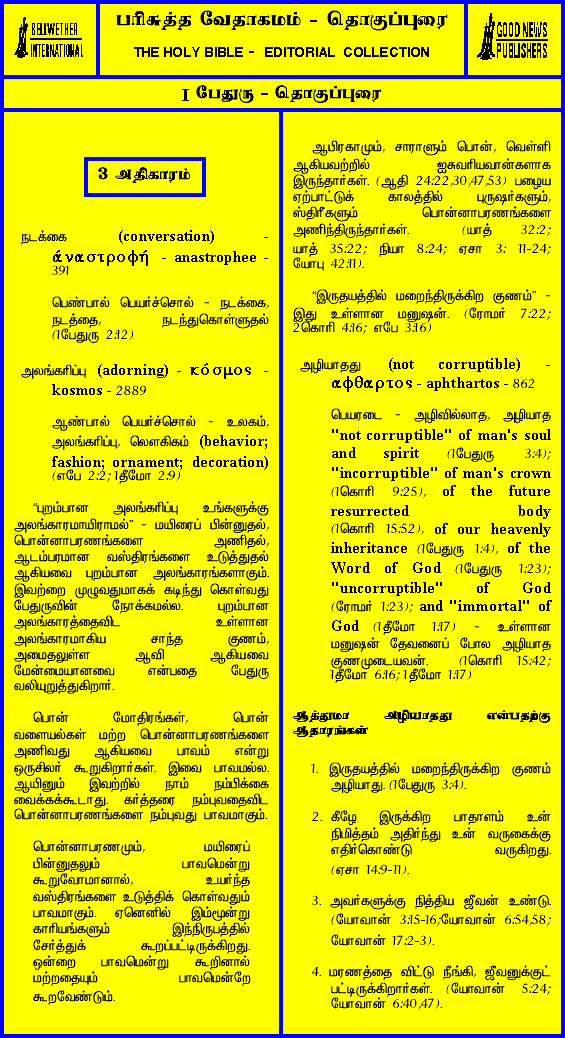 BELLWETHER
INTERNATIONAL
பரிசுத்த வேதாகமம் - தொகுப்புரை
THE HOLY BIBLE - EDITORIAL COLLECTION
GOOD NEWS
PUBLISHERS
I பேதுரு - தொகுப்புரை
3 அதிகாரம்
நடக்கை (conversation) -
ἀναστροφή - anastrophee -
391
பெண்பால் பெயர்ச்சொல் - நடக்கை,
நடத்தை, நடந்துகொள்ளுதல்
(1பேதுரு 2:12)
அலங்கரிப்பு (adorning) - κόσμος -
kosmos - 2889
ஆண்பால் பெயர்ச்சொல் - உலகம்,
அலங்கரிப்பு, லௌகிகம் (behavior;
fashion; ornament; decoration)
(எபே 2:2; 1தீமோ 2:9)
“புறம்பான அலங்கரிப்பு உங்களுக்கு
அலங்காரமாயிராமல்” - மயிரைப் பின்னுதல்,
பொன்னாபரணங்களை அணிதல்,
ஆடம்பரமான வஸ்திரங்களை உடுத்துதல்
ஆகியவை புறம்பான அலங்காரங்களாகும்.
இவற்றை முழுவதுமாகக் கடிந்து கொள்வது
பேதுருவின் நோக்கமல்ல. புறம்பான
அலங்காரத்தைவிட உள்ளான
அலங்காரமாகிய சாந்த குணம்,
அமைதலுள்ள ஆவி ஆகியவை
மேன்மையானவை என்பதை பேதுரு
வலியுறுத்துகிறார்.
பொன் மோதிரங்கள், பொன்
வளையல்கள் மற்ற பொன்னாபரணங்களை
அணிவது ஆகியவை பாவம் என்று
ஒருசிலர் கூறுகிறார்கள். இவை பாவமல்ல.
ஆயினும் இவற்றில் நாம் நம்பிக்கை
வைக்கக்கூடாது. கர்த்தரை நம்புவதைவிட
பொன்னாபரணங்களை நம்புவது பாவமாகும்.
பொன்னாபரணமும், மயிரைப்
பின்னுதலும் பாவமென்று
கூறுவோமானால், உயர்ந்த
வஸ்திரங்களை உடுத்திக் கொள்வதும்
பாவமாகும். ஏனெனில் இம்மூன்று
காரியங்களும் இந்நிருபத்தில்
சேர்த்துக் கூறப்பட்டிருக்கிறது.
ஒன்றை பாவமென்று கூறினால்
மற்றதையும் பாவமென்றே
கூறவேண்டும்.
ஆபிரகாமும், சாராளும் பொன், வெள்ளி
ஆகியவற்றில் ஐசுவரியவான்களாக
இருந்தார்கள். (ஆதி 24:22,30,47,53) பழைய
ஏற்பாட்டுக் காலத்தில் புருஷர்களும்,
ஸ்திரீகளும் பொன்னாபரணங்களை
அணிந்திருந்தார்கள். (யாத் 32:2;
யாத் 35:22; நியா 8:24; ஏசா 3: 11-24;
யோபு 42:11).
“இருதயத்தில் மறைந்திருக்கிற குணம்” -
இது உள்ளான மனுஷன். (ரோமர் 7:22;
2கொரி 4:16; எபே 3:16)
அழியாதது (not corruptible) -
αφθαρτος - aphthartos - 862
பெயரடை - அழிவில்லாத, அழியாத
"not corruptible" of man's soul
and spirit (1பேதுரு 3:4);
"incorruptible" of man's crown
(1கொரி 9:25), of the future
resurrected body
(1கொரி 15:52), of our heavenly
inheritance (1பேதுரு 1:4), of the
Word of God (1பேதுரு 1:23);
"uncorruptible" of God
(ரோமர் 1:23); and "immortal" of
God (1தீமோ 1:17) - உள்ளான
மனுஷன் தேவனைப் போல அழியாத
குணமுடையவன். (1கொரி 15:42;
1தீமோ 6:16; 1தீமோ 1:17)
ஆத்துமா அழியாதது என்பதற்கு
ஆதாரங்கள்
1. இருதயத்தில் மறைந்திருக்கிற குணம்
அழியாது. (1பேதுரு 3:4).
2. கீழே இருக்கிற பாதாளம் உன்
நிமித்தம் அதிர்ந்து உன் வருகைக்கு
எதிர்கொண்டு வருகிறது.
(ஏசா 14:9-11).
3. அவர்களுக்கு நித்திய ஜீவன் உண்டு.
(யோவான் 3:15-16;யோவான் 6:54,58;
யோவான் 17:2-3).
4. மரணத்தை விட்டு நீங்கி, ஜீவனுக்குட்
பட்டிருக்கிறார்கள். (யோவான் 5:24;
யோவான் 6:40,47).